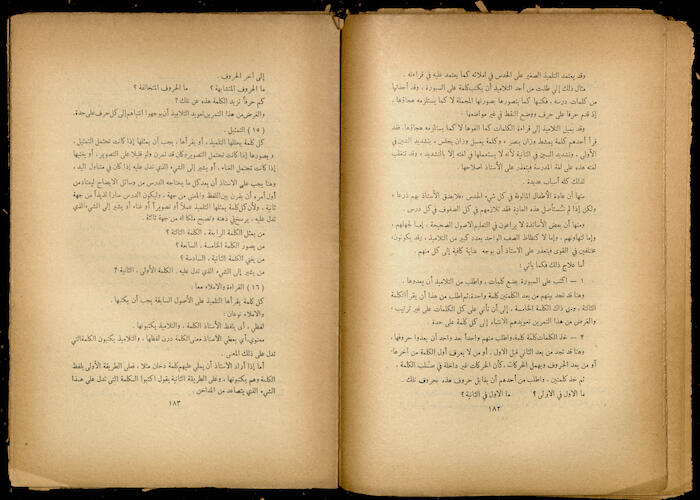 وقد يعتمد التلميذ الصغير على الحدس في املائه كما يعتمد عليه في قراءته .
مثال ذلك إني طلبت من أحد التلاميذ أن يكتب كلمة على السبورة ، وقد أخذتها
من كلمات درسه ، فكتبها كما يتصورها بصورتها المجملة لا كما يستلزمه هجاؤها ،
إذ قدم حرفاً على حرف ووضع النقط في غير مواضعها
وقد يميل التلميذ إلى قراءة الكلمات كما ألفها لا كما يستلزمه هجاؤها، فقد
قرأ أحدهم كلمة يبسط وزان ينصر وكلمة يغسل وزان يجلس ، بتشديد السين في
الأولى ، وتشديد السين في الثانية لأنه لا يستعملها في لغته إلا بالتشديد ، وقد تتغلب
لغته هذه على لغة المدرسة فيتعذر على الأستاذ اصلاحها .
لذلك كله أسباب عديدة .
منها أن عادة الأطفال المألوفة في كل شيء الحدس ، فلا يضق الأستاذ بهم ذرعاً ،
ولكن إذا لم تُستأصل هذه العادة فقد تلازمهم في كل الصفوف في كل درس .
ومنها أن بعض الأساتذة لا يراعون في التعليم الاصول الصحيحة ، إما لجهلهم ،
وإما لتهاونهم ، وإما لاكتظاظ الصف الواحد بعدد كبير من التلاميذ ، وقد يكونون
مختلفين في القوى فيتعذر على الأستاذ أن يوجه عناية كافية إلى كل منهم .
أما علاج ذلك فكما يأتي :
١ — اكتب على السبورة بضع كلمات ، واطلب من التلاميذ أن يعدوها .
وهنا قد تجد بينهم من يعد الكلمتين كلمة واحدة، ثم اطلب من هذا أن يقرأ الكلمة
الثالثة ، ومن ذلك الكلمة الخامسة ، إلى أن تأتي على كل الكلمات على غير ترتيب ،
والغرض من هذا التمرين تعويدهم الانتباه إلى كل كلمة على حدة .
٢ — خذ الكلمات كلمة كلمة، واطلب منهم واحداً بعد واحد أن يعدوا حروفها ،
وهنا قد تجد من يعد الثاني قبل الاول ، أو من لا يعرف أول الكلمة من آخرها
أو من يعد الحروف ويهمل الحركات، كأن الحركات غير داخلة في صلب الكلمة ،
ثم خذ كلمتين ، واطلب من أحدهم أن يقابل حروف هذه بحروف تلك .
ما الاول في الاولى ؟ ما الاول في الثانية ؟
١٨٢
إلى آخر الحروف .
ما الحروف المتشابهة ؟ ما الحروف المتخالفة ؟
كم حرفاً تزيد الكلمة هذه عن تلك ؟
والغرض من هذا التمرين تعويد التلاميذ أن يوجهوا انتباههم إلى كل حرف على حدة.
( ١٥ ) التمثيل .
كل كلمة يحللها التلميذ ، أو يقرأها ، يجب أن يمثلها إذا كانت تحتمل التمثيل ،
و يصورها إذا كانت تحتمل التصوير وكان قد تمرن ولو قليلا على التصوير ، أو يغنيها
إذا كانت تحتمل الغناء ، أو يشير إلى الشيء الذي تدل عليه إذا كان في متناول اليد ،
وهنا يجب على الأستاذ أن يعد كل ما يحتاجه الدرس من وسائل الايضاح ليعتاد من
أول أمره أن يقرن بين اللفظ والمعنى من جهة ، وليكون الدرس ساراً لذيذاً من جهة
ثانية ، ولأن كل كلمة يمثلها التلميذ عملاً أو تصويراً أو غناء أو يشير إلى الشيء الذي
تدل عليه ، يرسخ في ذهنه وتصبح ملكا له من جهة ثالثة .
من يمثل الكلمة الرابعة ، الكلمة الثالثة ؟
من يصور الكلمة الخامسة ، السابعة ؟
من يغني الكلمة الثانية ، السادسة ؟
من يشير إلى الشيء الذي تدل عليه . الكلمة الأولى ، الثانية ؟
( ١٦ ) القراءة والاملاء معاً :
كل كلمة يقرأها التلميذ على الأصول السابقة يجب أن يكتبها .
والاملاء نوعان :
لفظي ، أي بلفظ الأستاذ الكلمة ، والتلاميذ يكتبونها .
معنوي، أي يعطي الأستاذ معنى الكلمة دون لفظها ، والتلاميذ يكتبون الكلمة التي
تدل على ذلك المعنى .
أما إذا أراد الاستاذ أن يملي عليهم كلمة دخان مثلا ، فعلى الطريقة الأولى يلفظ
الكلمة وهم يكتبونها ، وعلى الطريقة الثانية يقول اكتبوا الكلمة التي تدل على هذا
الشيء الذي يتصاعد من المداخن .
١٨٣